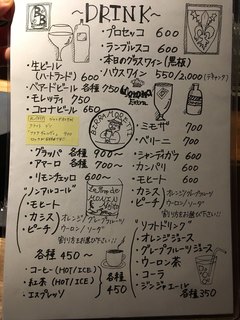 BB
~DRINK~
・プロセッコ 600
・ランブルスコ 600
・本日のグラスワイン(黒板)
・生ビール
(ハートランド) 600
・ハウスワイン 550/2,000(デキャンタ)
・ペアードビール 各種750
・モレッティ 650
・コロナビール 650
Corona
Extra
BIRRA MORETTI
・ミモザ 700
・ベリーニ 700
・グラッパ 各種 900~
・アマーロ 各種 700~
・リモンチェッロ 600~
・シャンディガフ 600
・カンパリ 600
・モヒート 600
"ノンアルコール"
・モヒート
・カシス
・ピーチ
オレンジ/グレープフルーツ
ウーロン/ソーダ
割り方をお選び下さい!!
各種 450~
・カシス
・ピーチ
オレンジ/グレープフルーツ
ウーロン/ソーダ
割り方をお選び下さい!!
"ソフトドリンク"
・オレンジジュース
・グレープフルーツジュース
・ウーロン茶
・コーラ
・ジンジャエール
各種350
・コーヒー(HOT/ICE)
・紅茶(HOT/ICE)
・エスプレッソ
各種
450